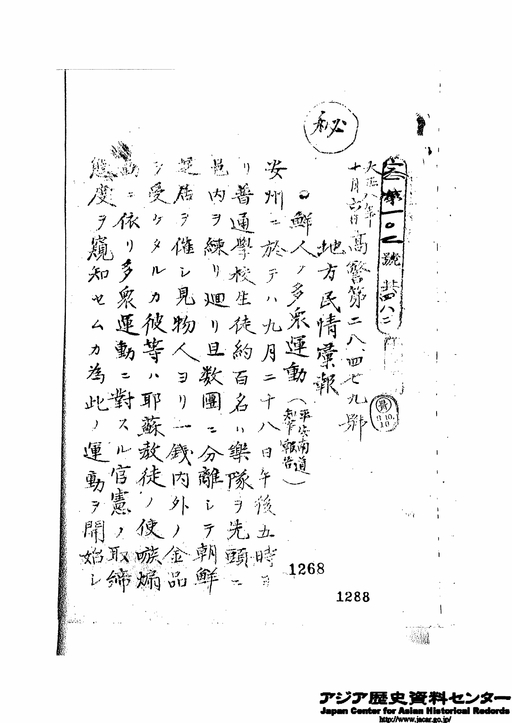 秘
大正八年
十月六日 高警第二八、四七九號
地方民情彙報
○鮮人ノ多衆運動（平安南道知事報告）
安州ニ於テハ九月二十八日午後五時ヨ
リ普通學校生徒約百名ハ樂隊ヲ先頭ニ
邑内ヲ練リ廻リ且数團ニ分離シテ朝鮮
芝居ヲ催シ見物人ヨリ一銭内外ノ金品
ヲ受ケタルカ彼等ハ耶蘇教徒ノ使嗾煽
動ニ依リ多衆運動ニ對スル官憲ノ取締
態度ヲ窺知セムカ為此ノ運動ヲ開始シ
1268
1288
アジア歴史資料センター
Japan Center for Asian Historical Records
http://www.jacar.go.jp/